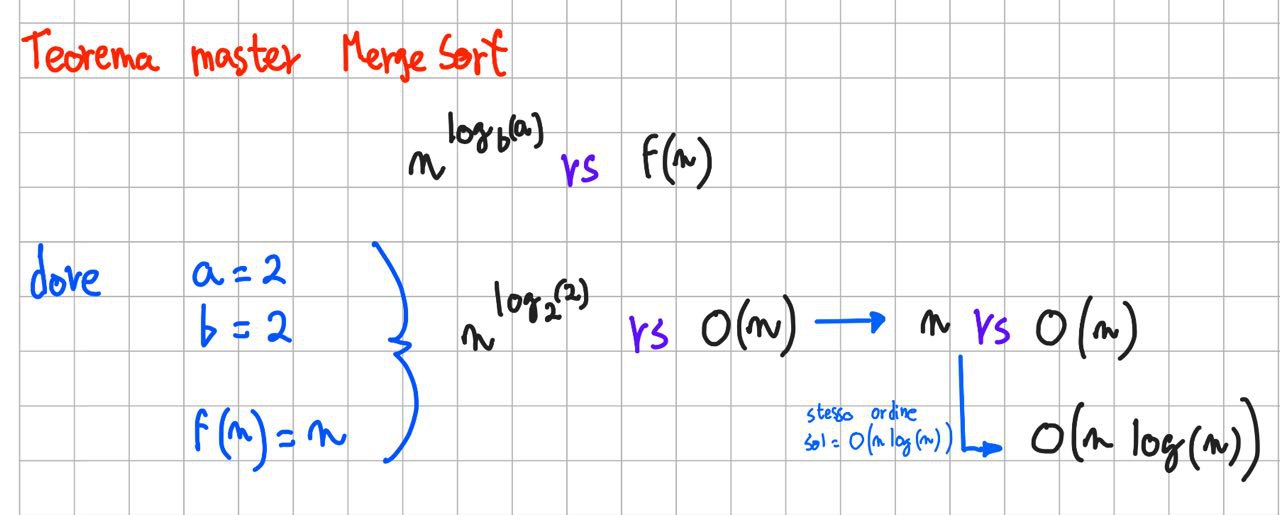 Teorema master Merge Sort
n^log_b(a) vs f(n)
dove a = 2
b = 2
f(n) = n
n^log_2(2) vs O(n) → n vs O(n)
stesso ordine
sol = O(n log(n))
O(n log(n))